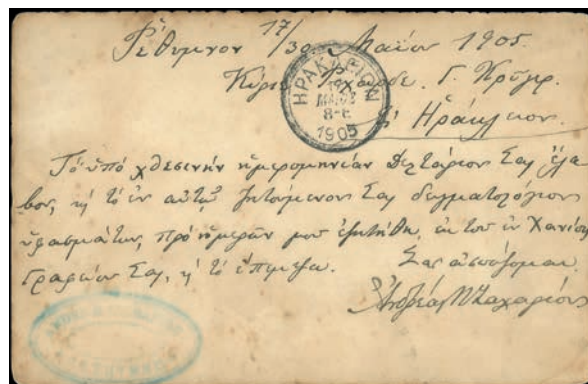 Ρέθυμνον 17/30 Μαΐου 1905.
Κύριε Ριχάρδε. Γ. Κρύγερ.
ΗΡΑΚΛΕΙΟΝ
ΜΑΙΟΣ
1905
Ἡράκλειον.
Τό ὑπό χθεσινήν ἡμερομηνίαν Δελτάριον Σας ἔλα
βον, τό ἐν αὐτῷ ζητούμενον Σας δειγματολόγιον
ὑφασμάτων, πρό ἡμερῶν μου ἐζητήθη, ἐκ του ἐν Χανίοις
Γραφείου Σας, τό ἔπεμψα.
Σας ἀσπάζομαι
Ἀνδρέας Ζαχαρίου